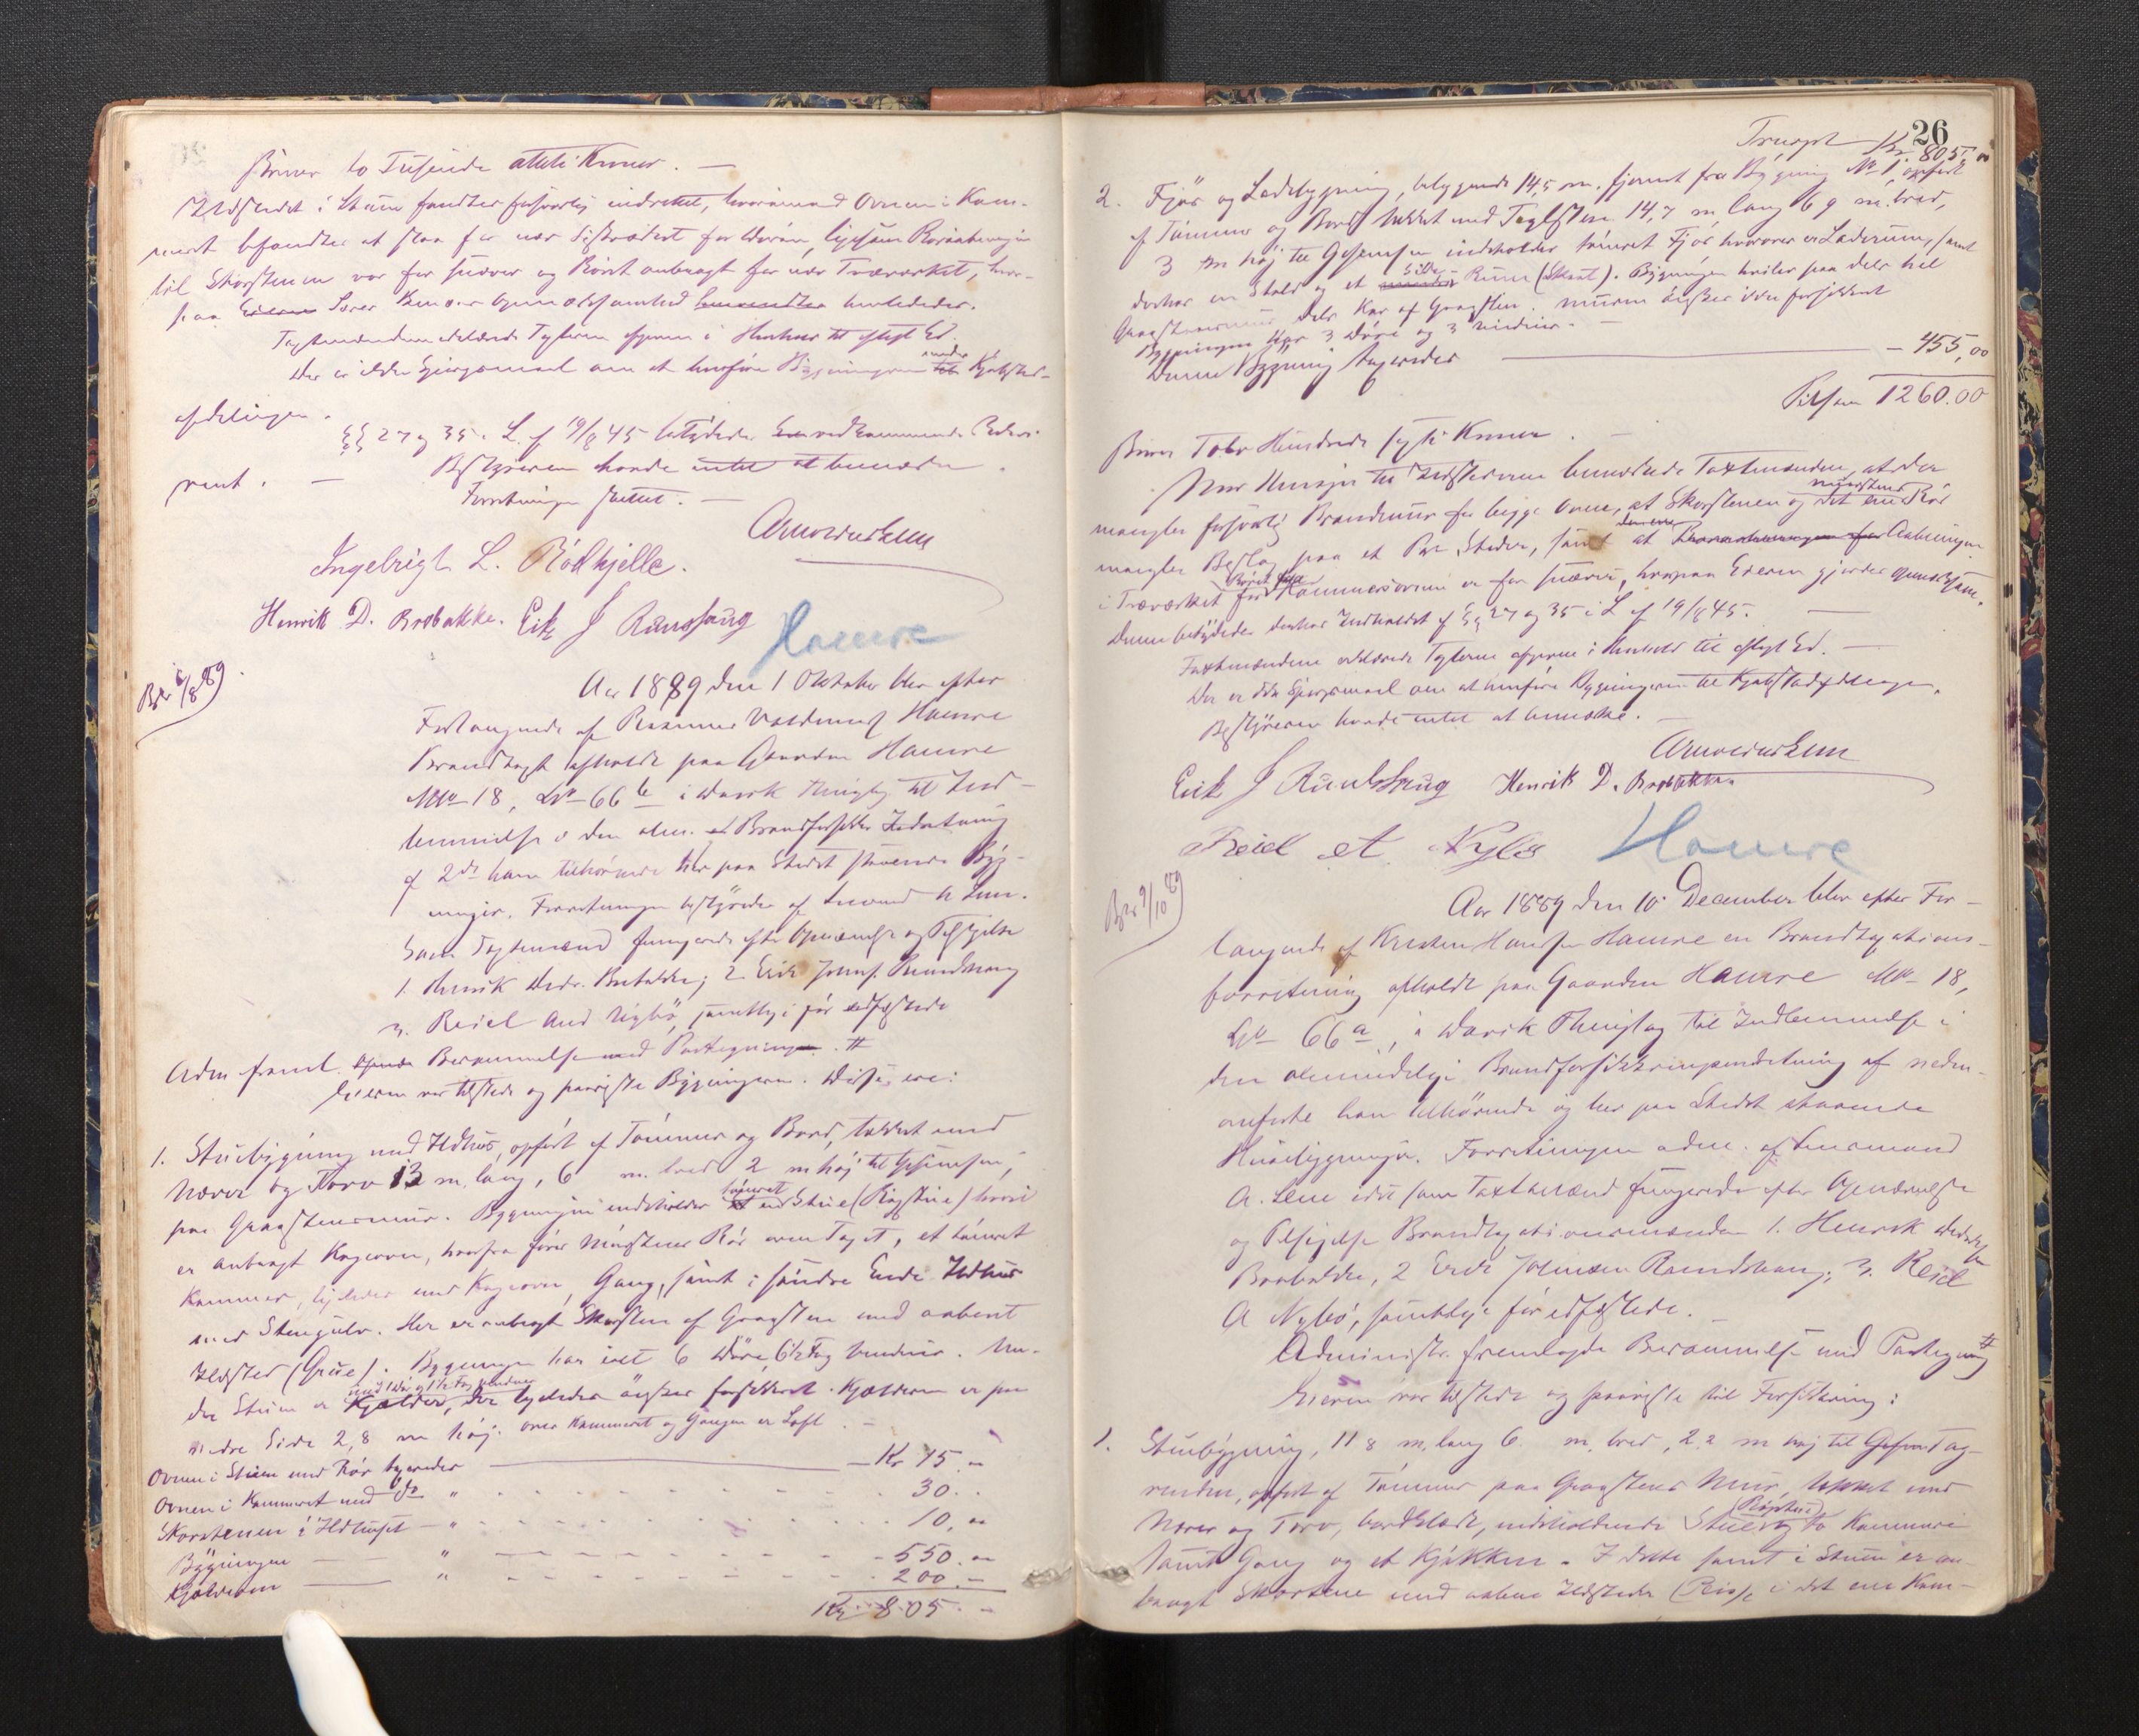 skriver to Tusende otteti Kroner. —
Ildstedet i Stuen fandtes forsvarlig indrettet, hvorimod Ovnen i Kam-
meret befandtes at staa for nær
til Skorstenen var for snæver og Røret anbragt for nær Træværket, hvor-
paa Eieren
Taxtmændene erklærede Taxterne afgivne i Henhold til aflagt Ed.
Der er ikke Spørgsmaal om at henføre Bygningerne under Kjøbstad-
afdelingen.
§§ 27 og 35 i L. af 19/8 45 betydedes vedkommende
rent. —
Bestyreren havde intet at bemærke.
Forretningen sluttet. —
Arnoldus Lem
Ingebrigt L. Rödkjelle.
Henrik D. Brobakke. Erik J Raudshaug
Hamre
Ber 6/8 89
Aar 1889 den 1 Oktober blev efter
Forlangende af Rasmus Valdemars Hamre
Brandtaxt afholdt paa Gaarden Hamre
Mno 18, Lno 66 b i Davik Thinglag til Ind-
lemmelse i den alm. Brandforsikr Indretning
af 2de ham tilhørende her paa Stedet staaende Byg-
ninger. Forretningen bestyredes af Lensmand A Lem.
Som Taxtmænd fungerede efter Opnævnelse og Tilsigelse
1. Henrik Didr. Brobakke; 2. Erik Johns. Raudshaug
3. Reiel And Nygbö, samtlige før edfæstede
Adm freml. Berammelse med Paategning. #
Eieren var tilstede og paaviste Bygningerne. Disse ere:
1. Stuebygning med Ildhus, opført af Tømmer og Bord, tækket med
Næver og Torv 13 m. lang, 6 m. bred 2 m høj til Gesimsen,
paa Graastensmur. Bygningen indeholder tømret en Stue (Røgstue) hvori
er anbragt Kogeovn, hvorfra fører Murstens Rør over Taget, et tømret
Kammer, ligeledes med Kogeovn, Gang, samt i søndre Ende Ildhus
med Stengulv. Her er anbragt Skorsten af Graasten med aabent
Ildsted (Grue). Bygningen har ialt 6 Døre, 6½ Fag Vinduer. Un-
der Stuen er Kjælder, med 1 Dør og 1½ Fag Vinduer der ligeledes ønskes forsikkeret. Kjælderen er paa
nedre Side 2,8 m høj. over Kammeret og Gangen er Loft. —
Ovnen i Stuen med Rør taxeredes — Kr 15. "
Ovnen i Kammeret med do " 30. "
Skorstenen i Ildhuset — " 10. "
Bygningen — " 550. "
Kjælderen — " 200. —
Kr 805. —
26
Transport Kr. 805, 00
2. Fjös og Ladebygning, beliggende 14,5 m. fjernet fra Bygning No 1, opført
af Tømmer og Bord tækket med Taglsten 14,7 m lang 6,9 m. bred,
3 m høj til Gesimsen indeholder tømret Fjös hvorover er Laderum, samt
derhos en Stald og et Side-Rum (Skut). Bygningen hviler paa dels hel
Graastensmur dels Kar af Graasten. Murene ønskes ikke forsikkret
Bygningen har 3 Døre og 3 Vinduer. —
Denne Bygning taxeredes — 455,00
Tilsam 1260.00
skriver Tolv Hundrede sexti Kroner. —
Med Hensyn til Ildstederne bemærkede Taxtmændene, at der
mangler forsvarlig Brandmur for begge Ovne, at Skorstenen og det ene Rør
mangler Beslag paa et Par Steder, samt at Aabningen
i Træværket for Kammersovnen er for snæver, hvorpaa Eieren gjordes opmærksom.
Denne betydedes derhos Indholdet af §§ 27 og 35 i L af 19/8 45. —
Taxtmændene erklærede Taxterne afgivne i Henhold til aflagt Ed. —
Der er ikke Spørgsmaal om at henføre Bygningerne til Kjøbstadafdelingen.
Bestyreren havde intet at bemærke. —
Arnoldus Lem
Erik J Raudshaug Henrik D. Brobakken
Reiel A. Nygbö
Hamre
Ber 9/10 89
Aar 1889 den 10 December blev efter For-
langende af Kristen Hansen Hamre en Brandtaxations-
forretning afholdt paa Gaarden Hamre Mno 18,
Lno 66 a, i Davik Thinglag til Indlemmelse i
den almindelige Brandforsikkringsindretning af neden-
anførte ham tilhørende og her paa Stedet staaende
Husebygninger. Forretningen adm. af Lensmand
A. Lem idet som Taxtmænd fungerede efter Opnævnelse
og Tilsigelse Brandtaxationsmændene 1. Henrik Didriksen
Brobakke, 2 Erik Johnsen Raudshaug, 3. Reiel
A Nybö, samtlige før edfæstede. —
Administr. fremlagde Berammelse med Paategning #
Eieren var tilstede og paaviste til Forsikring:
1. Stuebygning, 11,8 m. lang 6 m. bred, 2,2 m høj til Tag-
renden, opført af Tømmer paa Graastens Mur, tækket med
Næver og Torv, bordklædt, indeholdende Stue (Røgstue) og to Kammere
samt Gang og et Kjøkken. I dette samt i Stuen er an-
bragt Skorstene med aabne Ildsteder i det ene Kam-